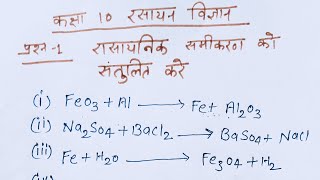 कक्षा 10 रसायन विज्ञान
प्रश्न-1 रासायनिक समीकरण को
संतुलित करे
(i) FeO3 + Al ⟶ Fe + Al2O3
(ii) Na2SO4 + BaCl2 ⟶ BaSO4 + NaCl
(iii) Fe + H2O ⟶ Fe3O4 + H2